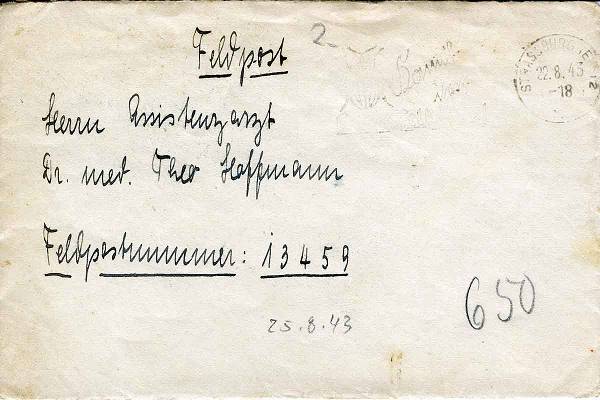 Feldpost
2
STRASSBURG (ELS)
22.8.43
-18
2
Herrn Assistenzarzt
Dr. med. Theo Hoffmann
Feldpostnummer: 13459
25.8.43
650